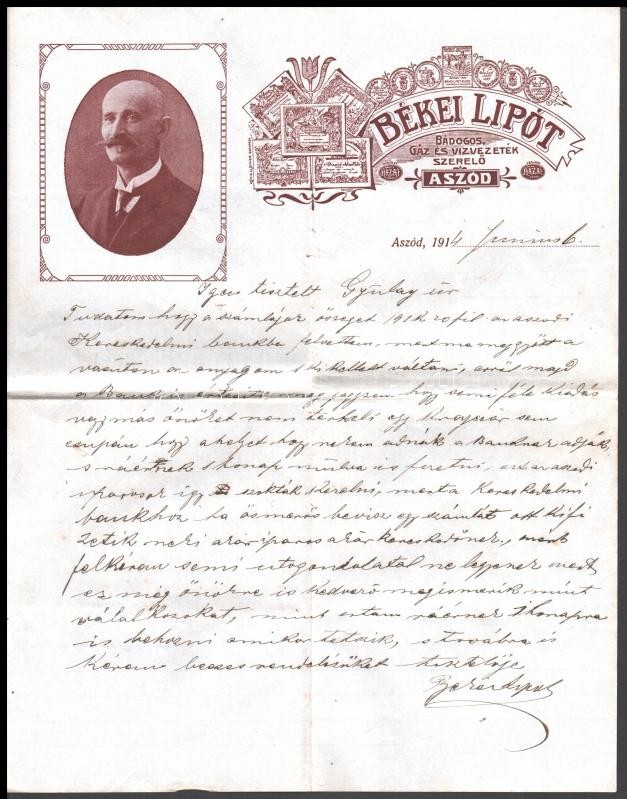 BÉKEI LIPÓT
BÁDOGOS,
GÁZ ÉS VIZVEZETÉK
SZERELŐ
ASZÓD
HAZAI
HAZAI
Aszód, 1914 Junius 6.
Igen tisztelt Gyulay úr
Tudatom hogy a számlájár összeget 191 K 20 fil az aszódi
Kereskedelmi bankba felvettem, mert ma megjött a
vasúton az anyagom s ki kellett váltani, arról majd
a Bank is hogy semiféle Kiadás
vagy más önöket nem terheli egy Krajczár sem
csupán hogy ahelyet hogy nekem adnák a Banknak adják
s ráérnek 1 honap mulva is fizetni, ezt az aszodi
iparosok így szokták kezelni, mert a Kereskedelmi
bankhoz ha ösmerős bevisz egy számlát ott kifi
zetik neki azár iparos azár kereskedőnek,
felkérem semi utogondolatal ne legyenek mert
ez még önökre is kedvező megismerik mint
válalkozokat, mint ráérnek 1 honapra
is behozni amikor tetszik, s továbra is
Kérem becses rendelésüket tisztelője
Bekei Lipot